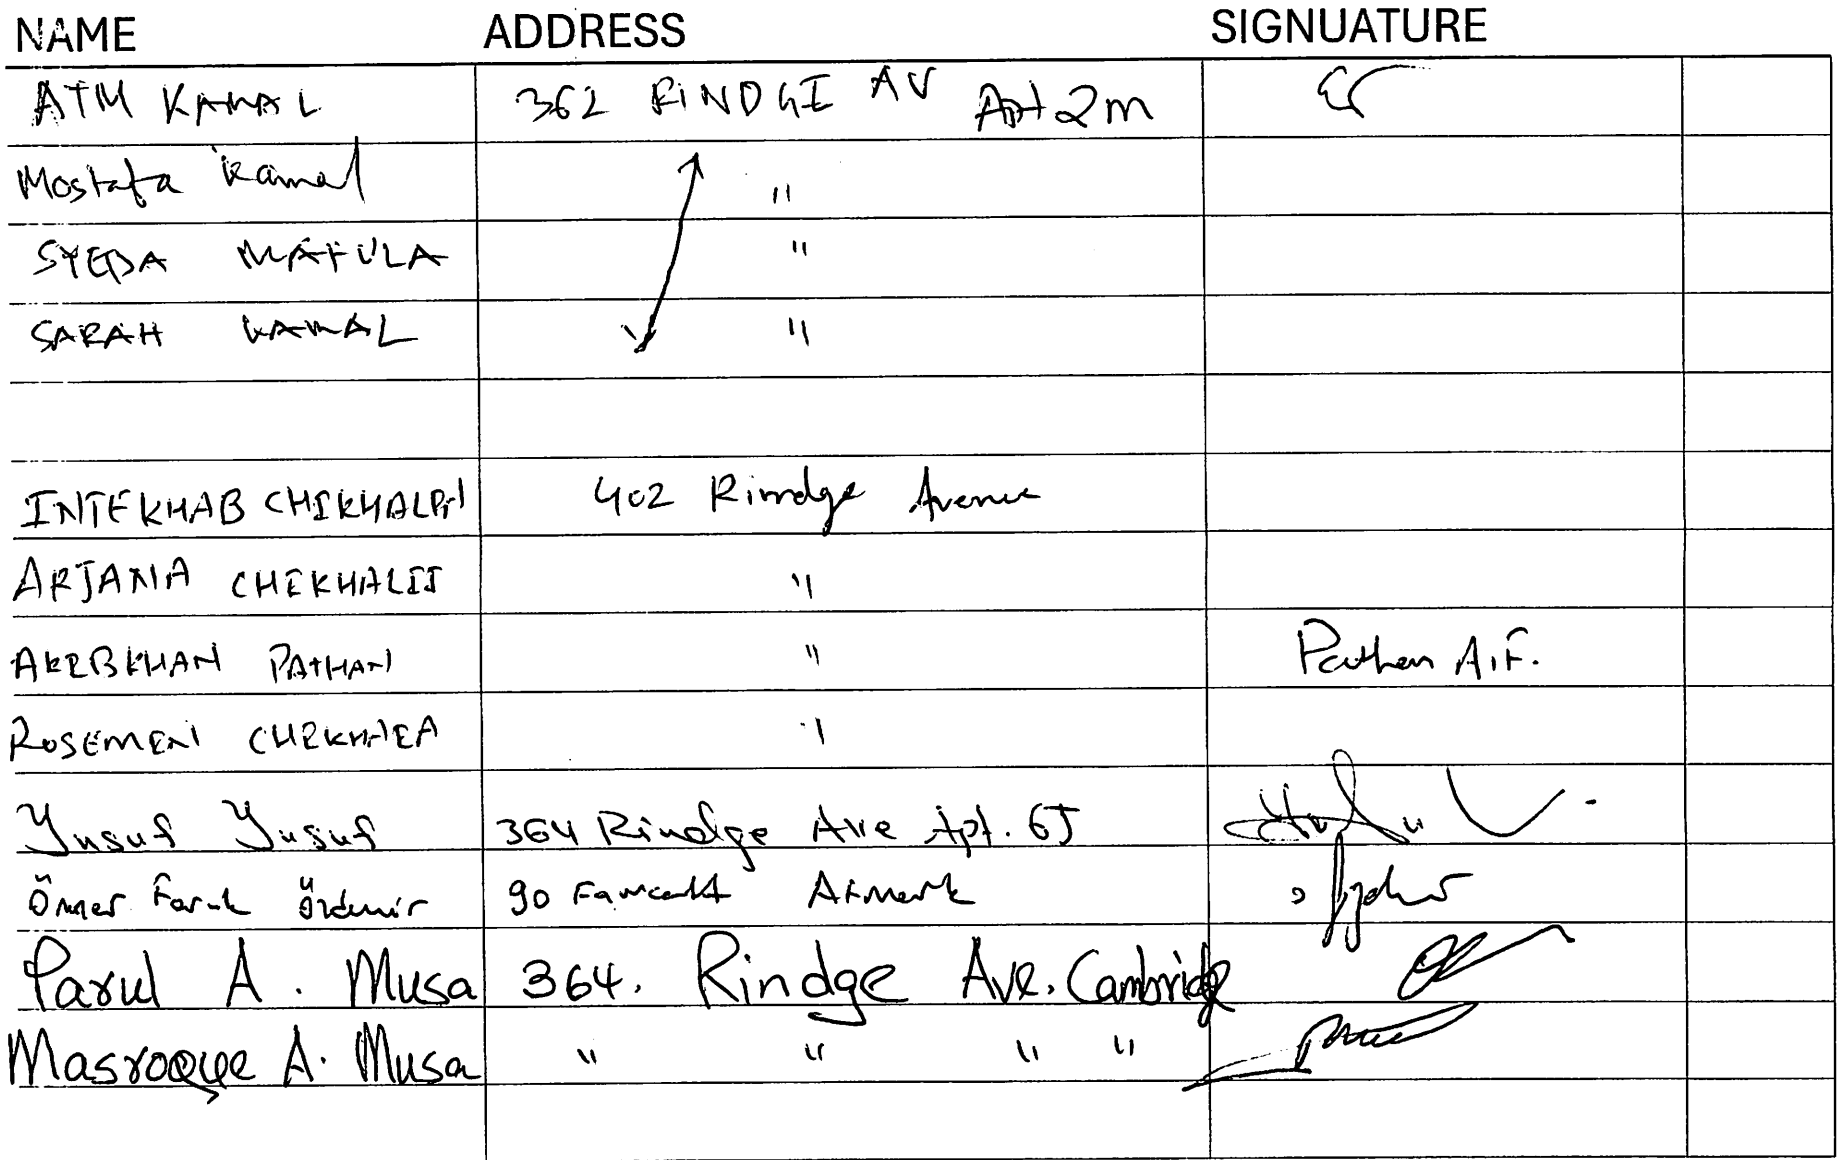 NAME ADDRESS SIGNUATURE
ATM KAMAL 362 RINDGI AV Apt 2m
Mostafa Kamal "
SYEDA MAFULA "
SARAH KAMAL "
INTEKHAB 402 Rindge Avenue
ARJANA "
AKEBKHAN PATHAN " Pathan A.F.
"
Yusuf Yusuf 364 Rindge Ave Apt. 6J
Ömer Faruk Özdemir 90
Parul A. Musa 364. Rindge Ave. Cambridge
Masroque A. Musa " " " "